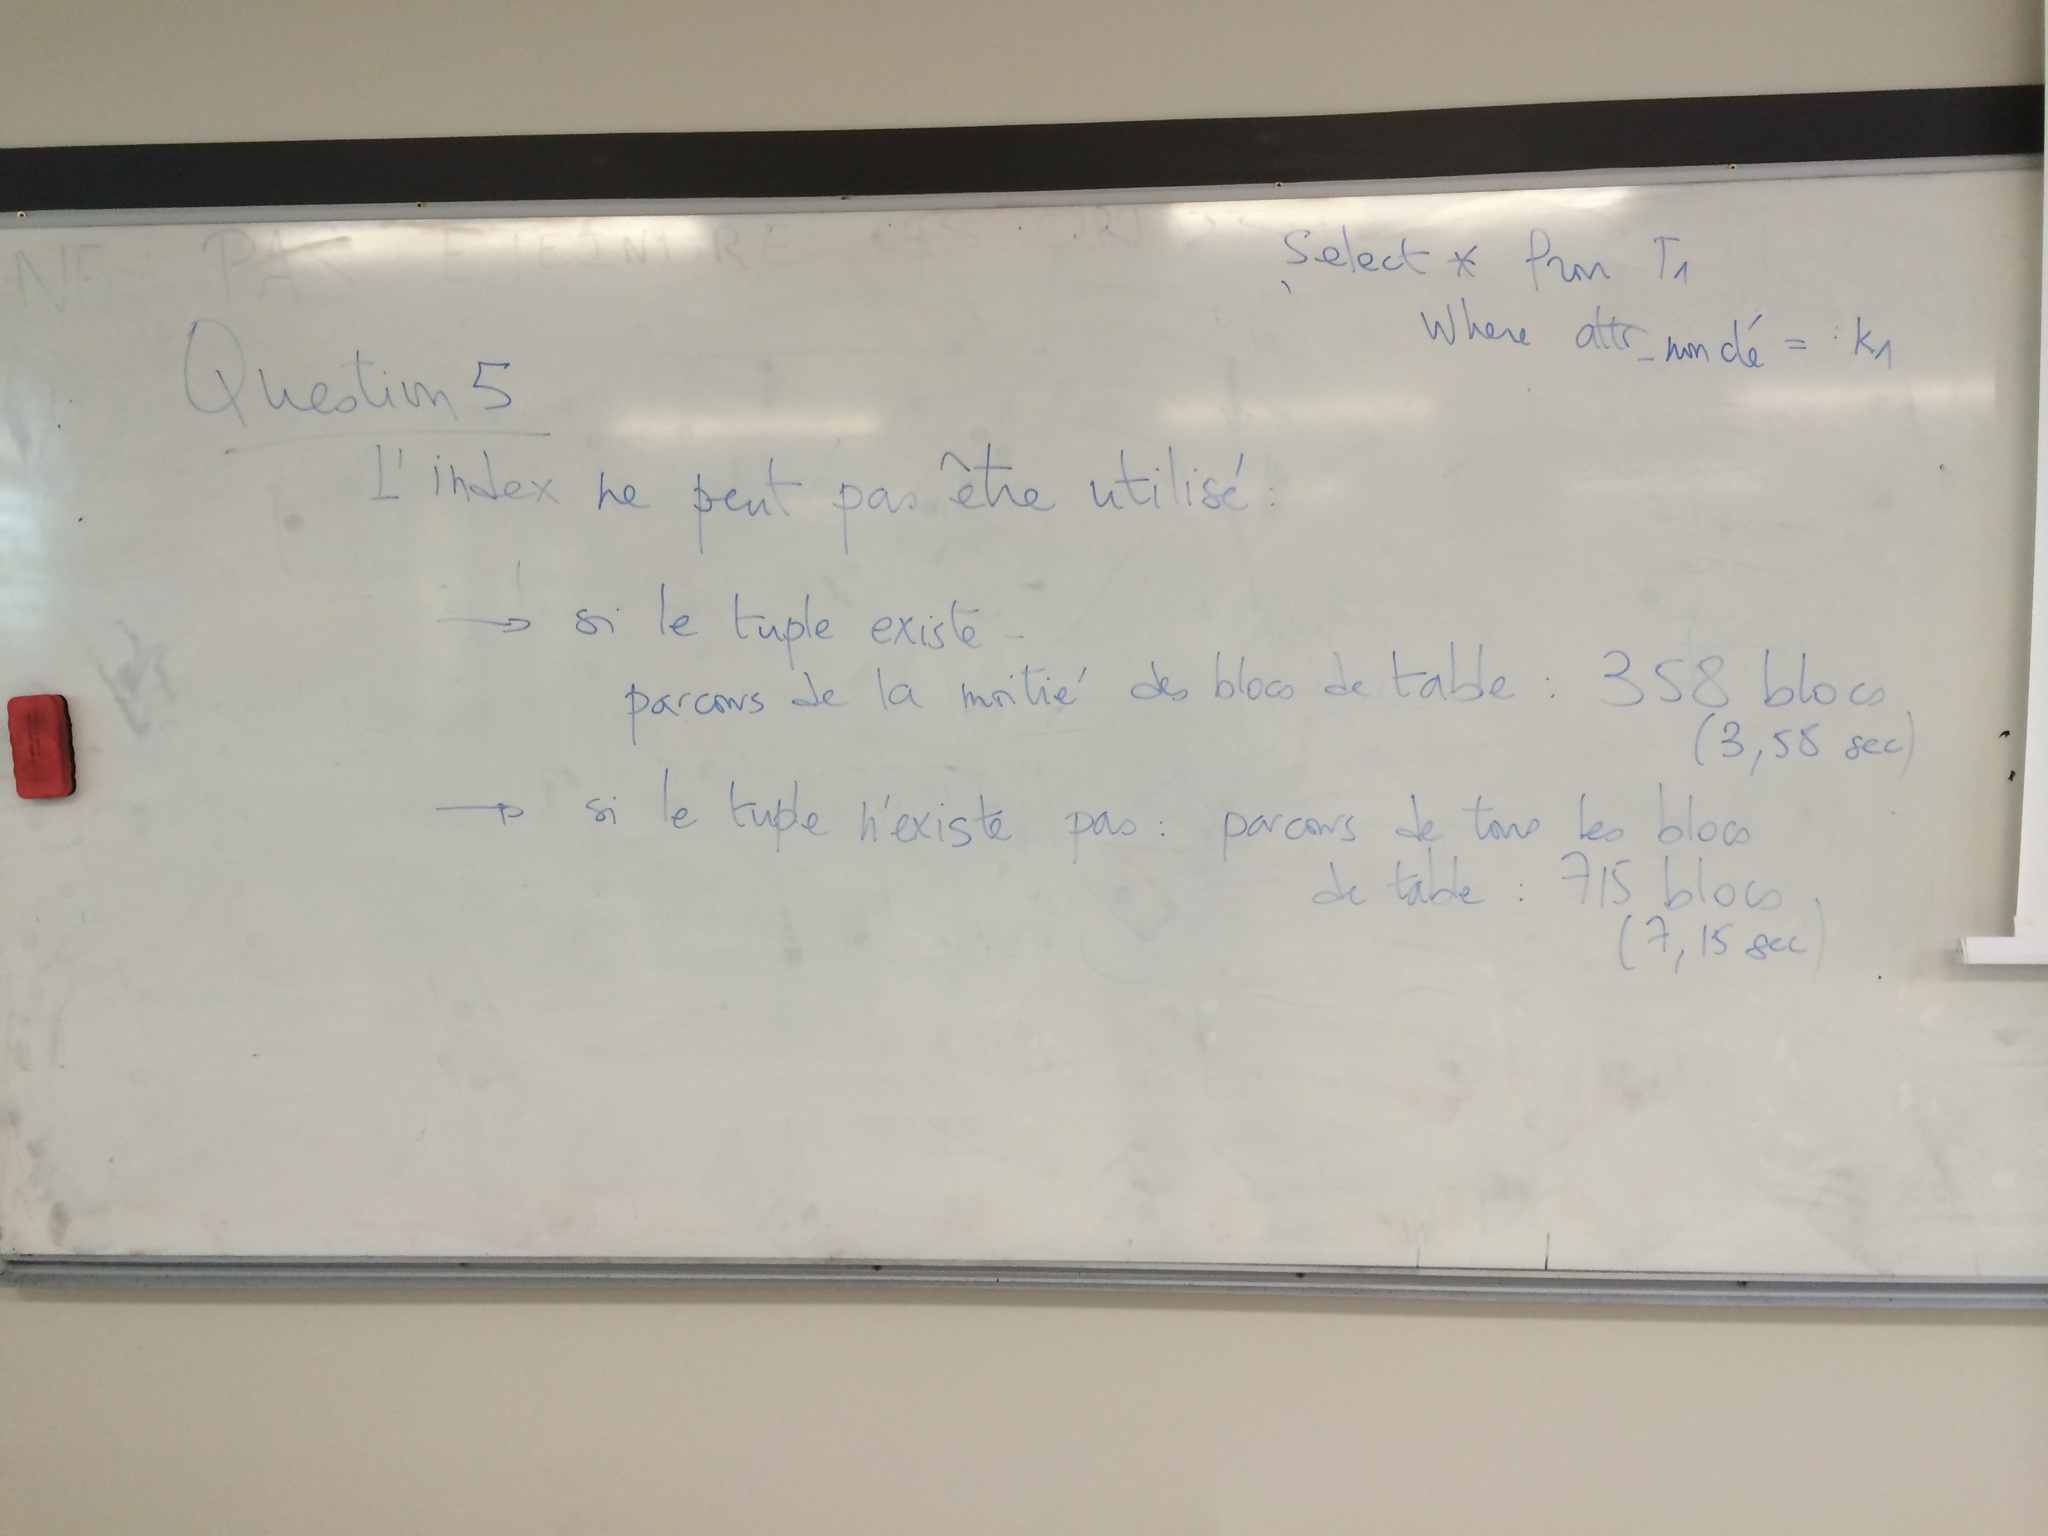 NE PAS ETEINDRE
Select * from T1
Where attr_non clé = :k1
Question 5
L'index ne peut pas être utilisé :
→ si le tuple existe -
parcours de la moitié des blocs de table : 358 blocs
(3,58 sec)
→ si le tuple n'existe pas : parcours de tous les blocs
de table : 715 blocs
(7,15 sec)